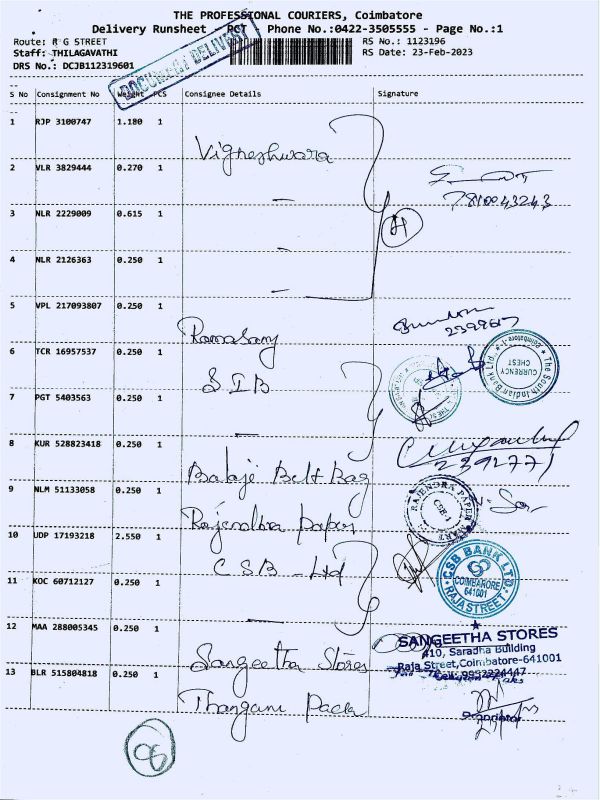 THE PROFESSIONAL COURIERS, Coimbatore
Delivery Runsheet - PCT Phone No.:0422-3505555 - Page No.:1
Route: R G STREET
Staff: THILAGAVATHI
DRS No.: DCJB112319601
RS No.: 1123196
RS Date: 23-Feb-2023
DOCUMENT DELIVERY
S No Consignment No Weight PCS Consignee Details Signature
1 RJP 3100747 1.180 1 Vigneshwara
2 VLR 3829444 0.270 1 —
7810043243
3 NLR 2229009 0.615 1 —
4 NLR 2126363 0.250 1 —
5 VPL 217093807 0.250 1 Ramasamy
2399617
6 TCR 16957537 0.250 1 S I B
The South Indian Bank Ltd. Coimbatore-1
CURRENCY CHEST
7 PGT 5403563 0.250 1 —
8 KUR 528823418 0.250 1 Balaji Belt Bag
2392771
9 NLM 51133058 0.250 1 Rajendra paper
RAJENDRA PAPER MART
CBE-1
10 UDP 17193218 2.550 1 C S B - Ltd
CSB BANK LTD
COIMBATORE
641001
RAJA STREET
11 KOC 60712127 0.250 1 —
12 MAA 288005345 0.250 1 Sangeetha Stores
SANGEETHA STORES
410, Saradha Building
Raja Street, Coimbatore-641001
9952224447
13 BLR 515804818 0.250 1 Thangam Pack
Proprietor
98